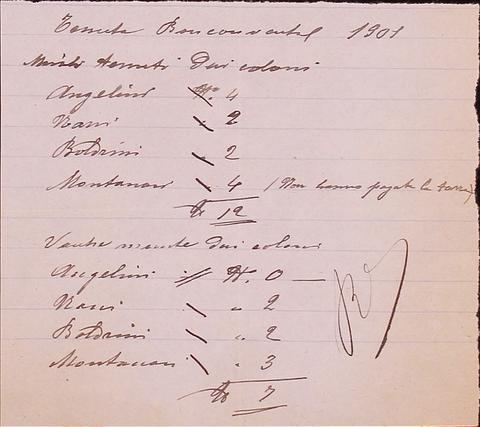 Tenuta Bonconventel 1901
Maiali tenuti Dai coloni
Angelini N. 4
Nanni " 2
Boldrini " 2
Montanari " 4 (Non hanno pagato la tassa)
N. 12
Maiali venduti Dai coloni
Angelini // N. 0 —
Nanni " 2
Boldrini " 2
Montanari " 3
N. 7